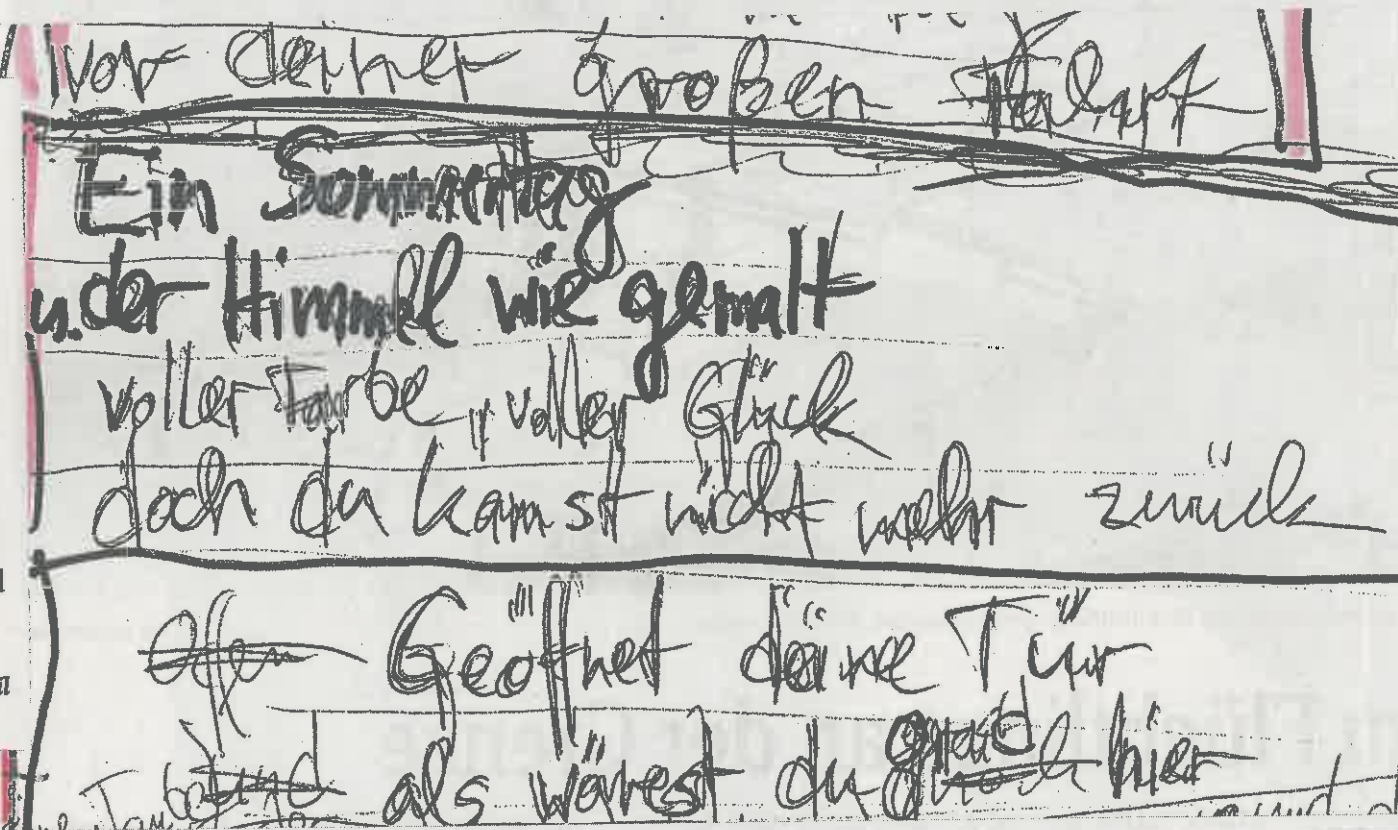 vor deiner großen
Ein Sommertag
u. der Himmel wie gemalt
voller Farbe, voller Glück
doch du kamst nicht mehr zurück
Offen Geöffnet deine Tür
als wärest du grad noch hier